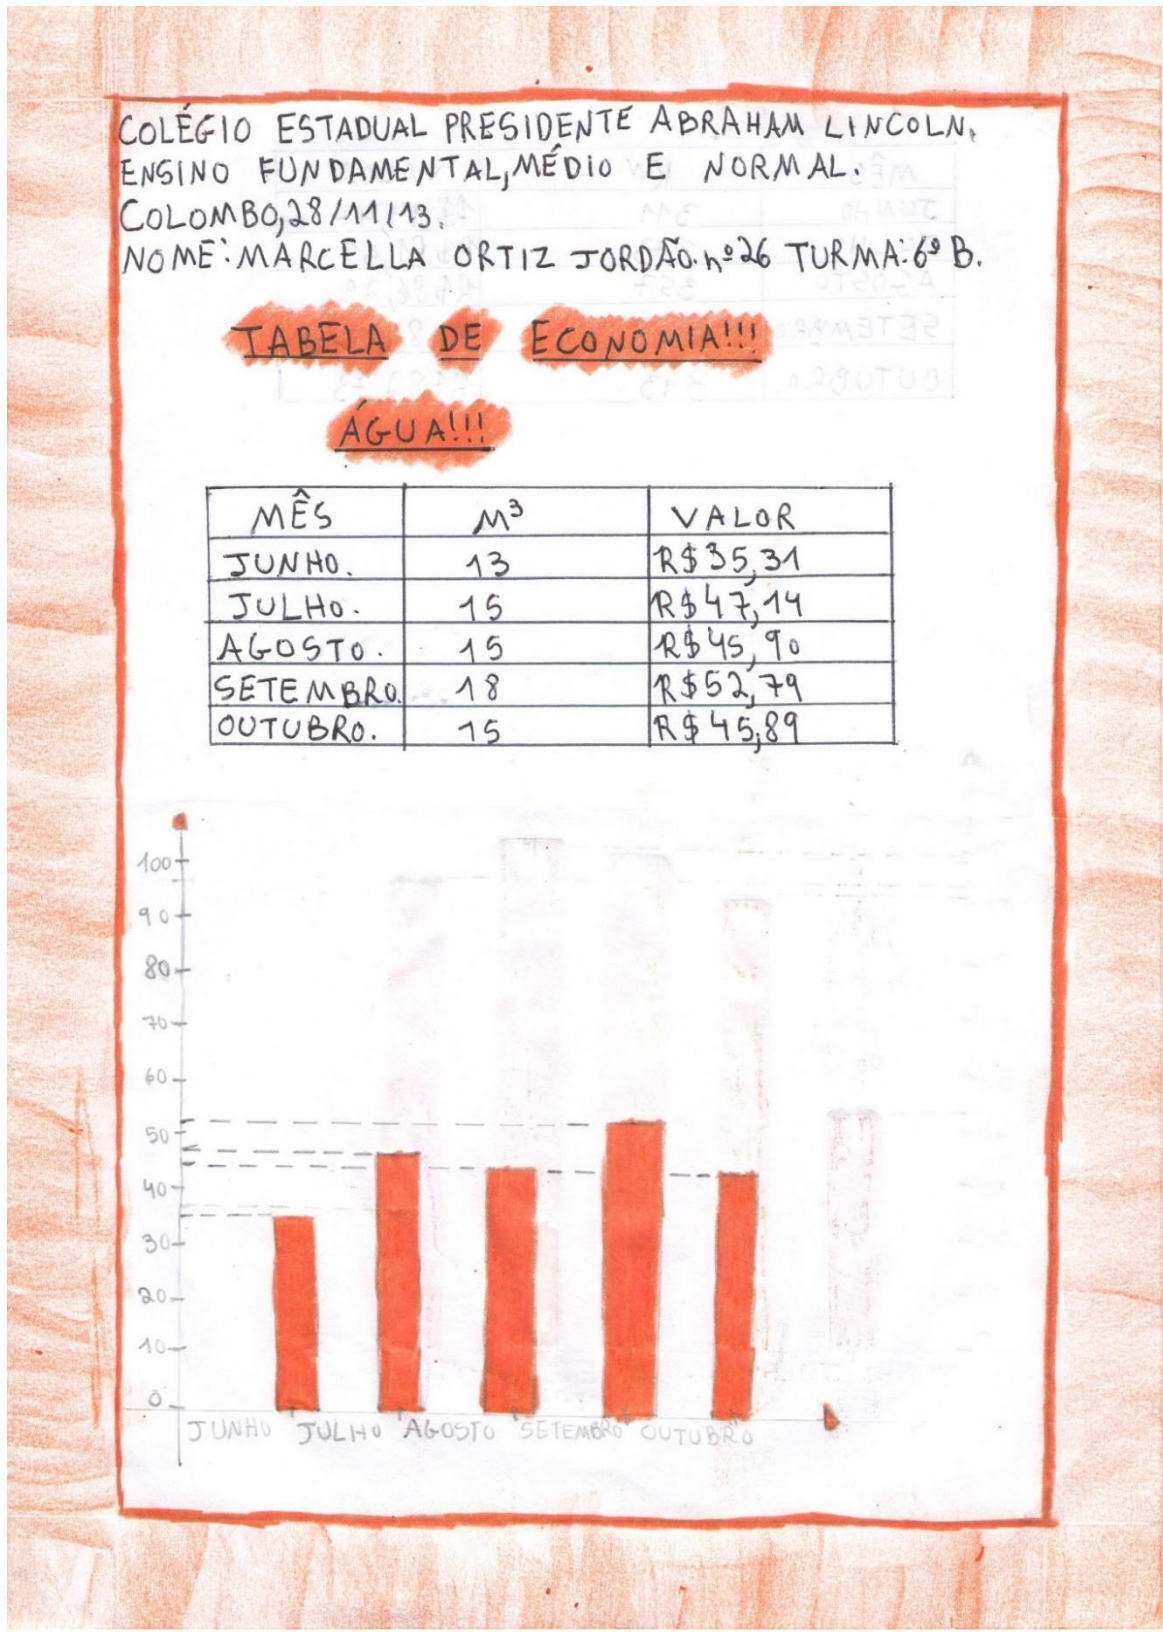 COLÉGIO ESTADUAL PRESIDENTE ABRAHAM LINCOLN.
ENSINO FUNDAMENTAL, MÉDIO E NORMAL.
COLOMBO, 28/11/13.
NOME: MARCELLA ORTIZ JORDÃO. nº 26 TURMA: 6º B.
TABELA DE ECONOMIA!!!
ÁGUA!!!
MÊS M³ VALOR
JUNHO. 13 R$35,31
JULHO. 15 R$47,14
AGOSTO. 15 R$45,90
SETEMBRO. 18 R$52,79
OUTUBRO. 15 R$45,89
100
90
80
70
60
50
40
30
20
10
0
JUNHO JULHO AGOSTO SETEMBRO OUTUBRO